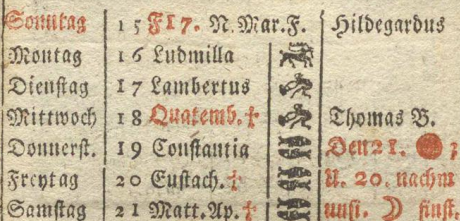 Sonntag 15 F17. N. Mar. F. Hildegardus
Montag 16 Ludmilla
Dienſtag 17 Lambertus
Mittwoch 18 Quatemb. † Thomas B.
Donnerſt. 19 Conſtantia Den 21.
Freytag 20 Euſtach. † U. 20. nachm
Samſtag 21 Matt. Ap. † unſ. ☽ finſt.